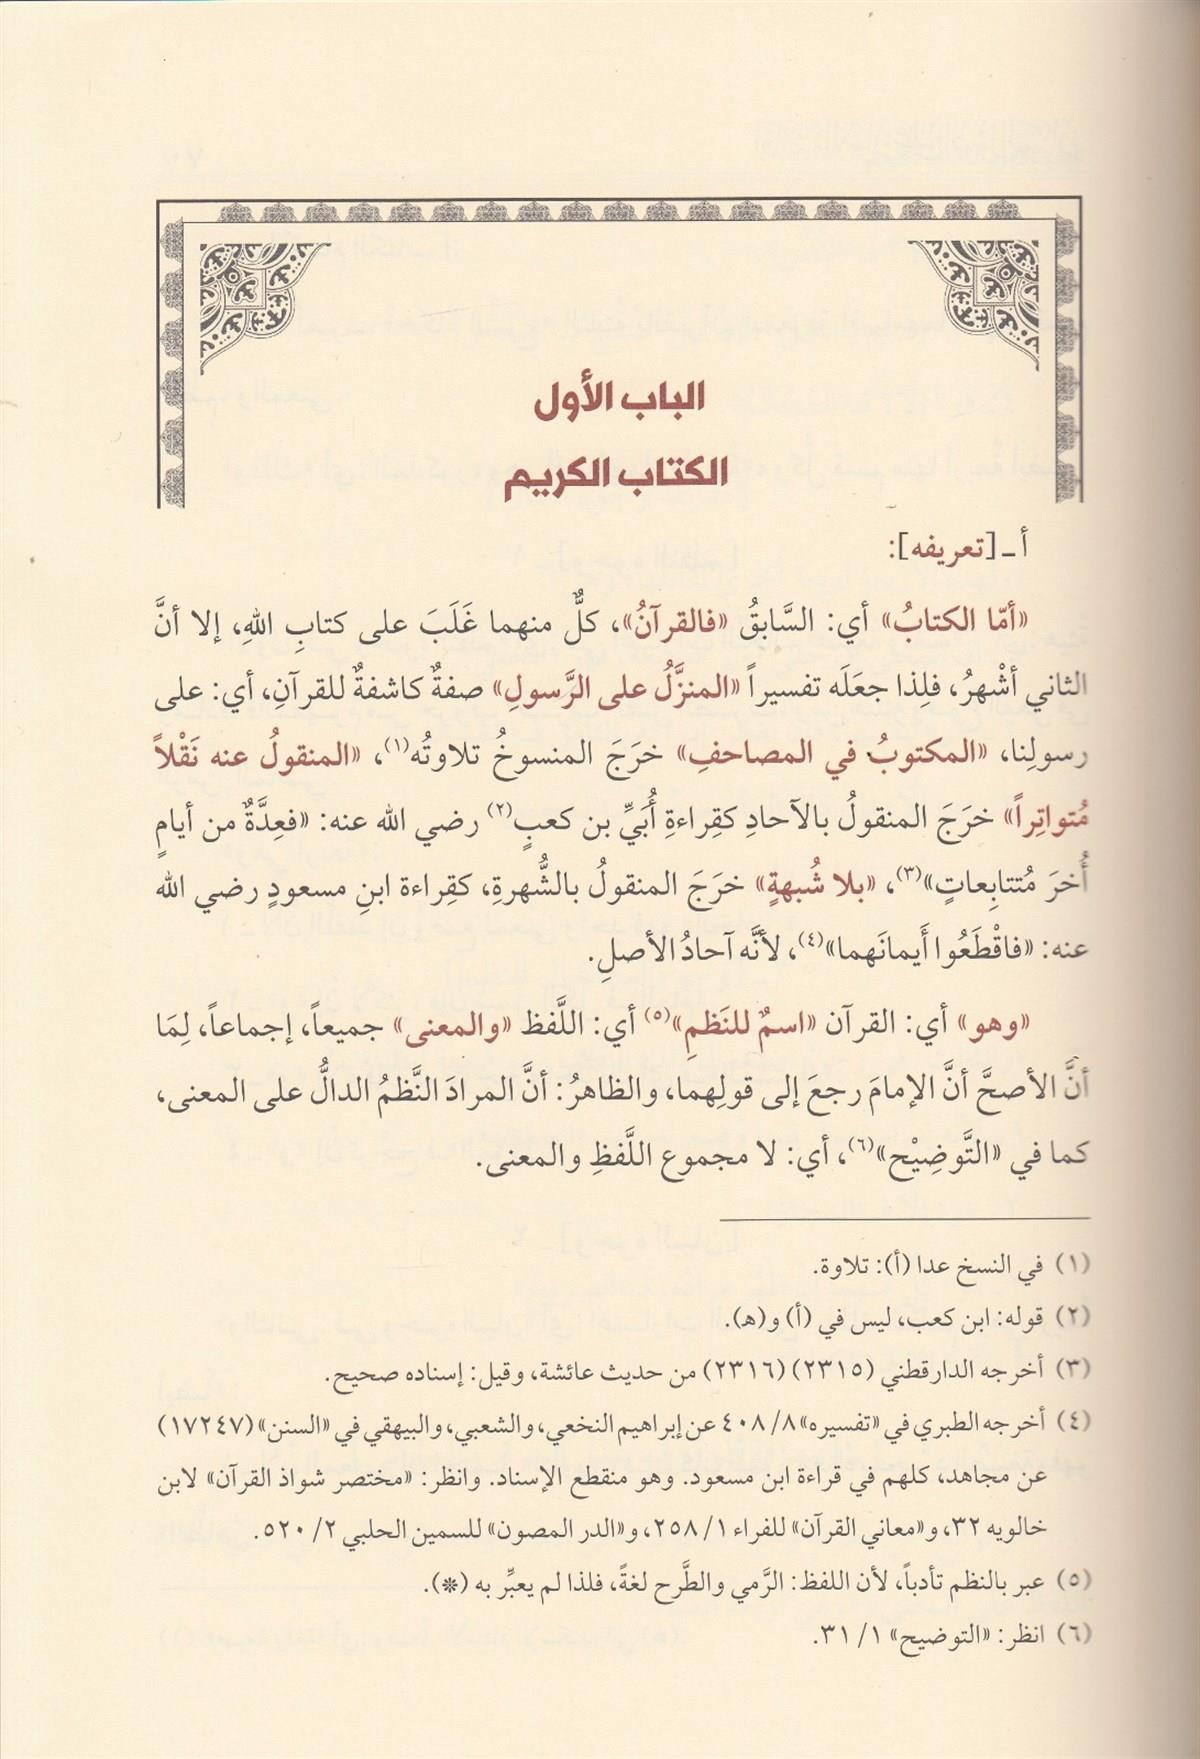 الباب الأول
الكتاب الكريم
أ ـ [تعريفه]:
«أمّا الكتابُ» أي: السَّابقُ «فالقرآنُ»، كلٌّ منهما غَلَبَ على كتابِ اللهِ، إلا أنَّ
الثاني أشْهرُ، فلِذا جعَلَه تفسيراً «المنزَّلُ على الرَّسولِ» صفةٌ كاشفةٌ للقرآنِ، أي: على
رسولِنا، «المكتوبُ في المصاحفِ» خرَجَ المنسوخُ تلاوتُه(١)، «المنقولُ عنه نَقْلاً
مُتواتِراً» خرَجَ المنقولُ بالآحادِ كقِراءةِ أُبَيِّ بن كعبٍ(٢) رضي الله عنه: «فعِدَّةٌ من أيامٍ
أُخرَ مُتتابِعاتٍ»(٣)، «بلا شُبهةٍ» خرَجَ المنقولُ بالشُّهرةِ، كقِراءة ابنِ مسعودٍ رضي الله
عنه: «فاقْطَعُوا أَيمانَهما»(٤)، لأنَّه آحادُ الأصلِ.
«وهو» أي: القرآن «اسمٌ للنَظمِ»(٥) أي: اللَّفظ «والمعنى» جميعاً، إجماعاً، لِمَا
أنَّ الأصحَّ أنَّ الإمامَ رجعَ إلى قولِهما، والظاهرُ: أنَّ المرادَ النَّظمُ الدالُّ على المعنى،
كما في «التَّوضِيْح»(٦)، أي: لا مجموع اللَّفظِ والمعنى.
(١) في النسخ عدا (أ): تلاوة.
(٢) قوله: ابن كعب، ليس في (أ) و(هـ).
(٣) أخرجه الدارقطني (٢٣١٥) (٢٣١٦) من حديث عائشة، وقيل: إسناده صحيح.
(٤) أخرجه الطبري في «تفسيره» ٨/ ٤٠٨ عن إبراهيم النخعي، والشعبي، والبيهقي في «السنن» (١٧٢٤٧)
عن مجاهد، كلهم في قراءة ابن مسعود. وهو منقطع الإسناد. وانظر: «مختصر شواذ القرآن» لابن
خالويه ٣٢، و«معاني القرآن» للفراء ١/ ٢٥٨، و«الدر المصون» للسمين الحلبي ٢/ ٥٢٠.
(٥) عبر بالنظم تأدباً، لأن اللفظ: الرَّمي والطَّرح لغةً، فلذا لم يعبِّر به (※).
(٦) انظر: «التوضيح» ١/ ٣١.